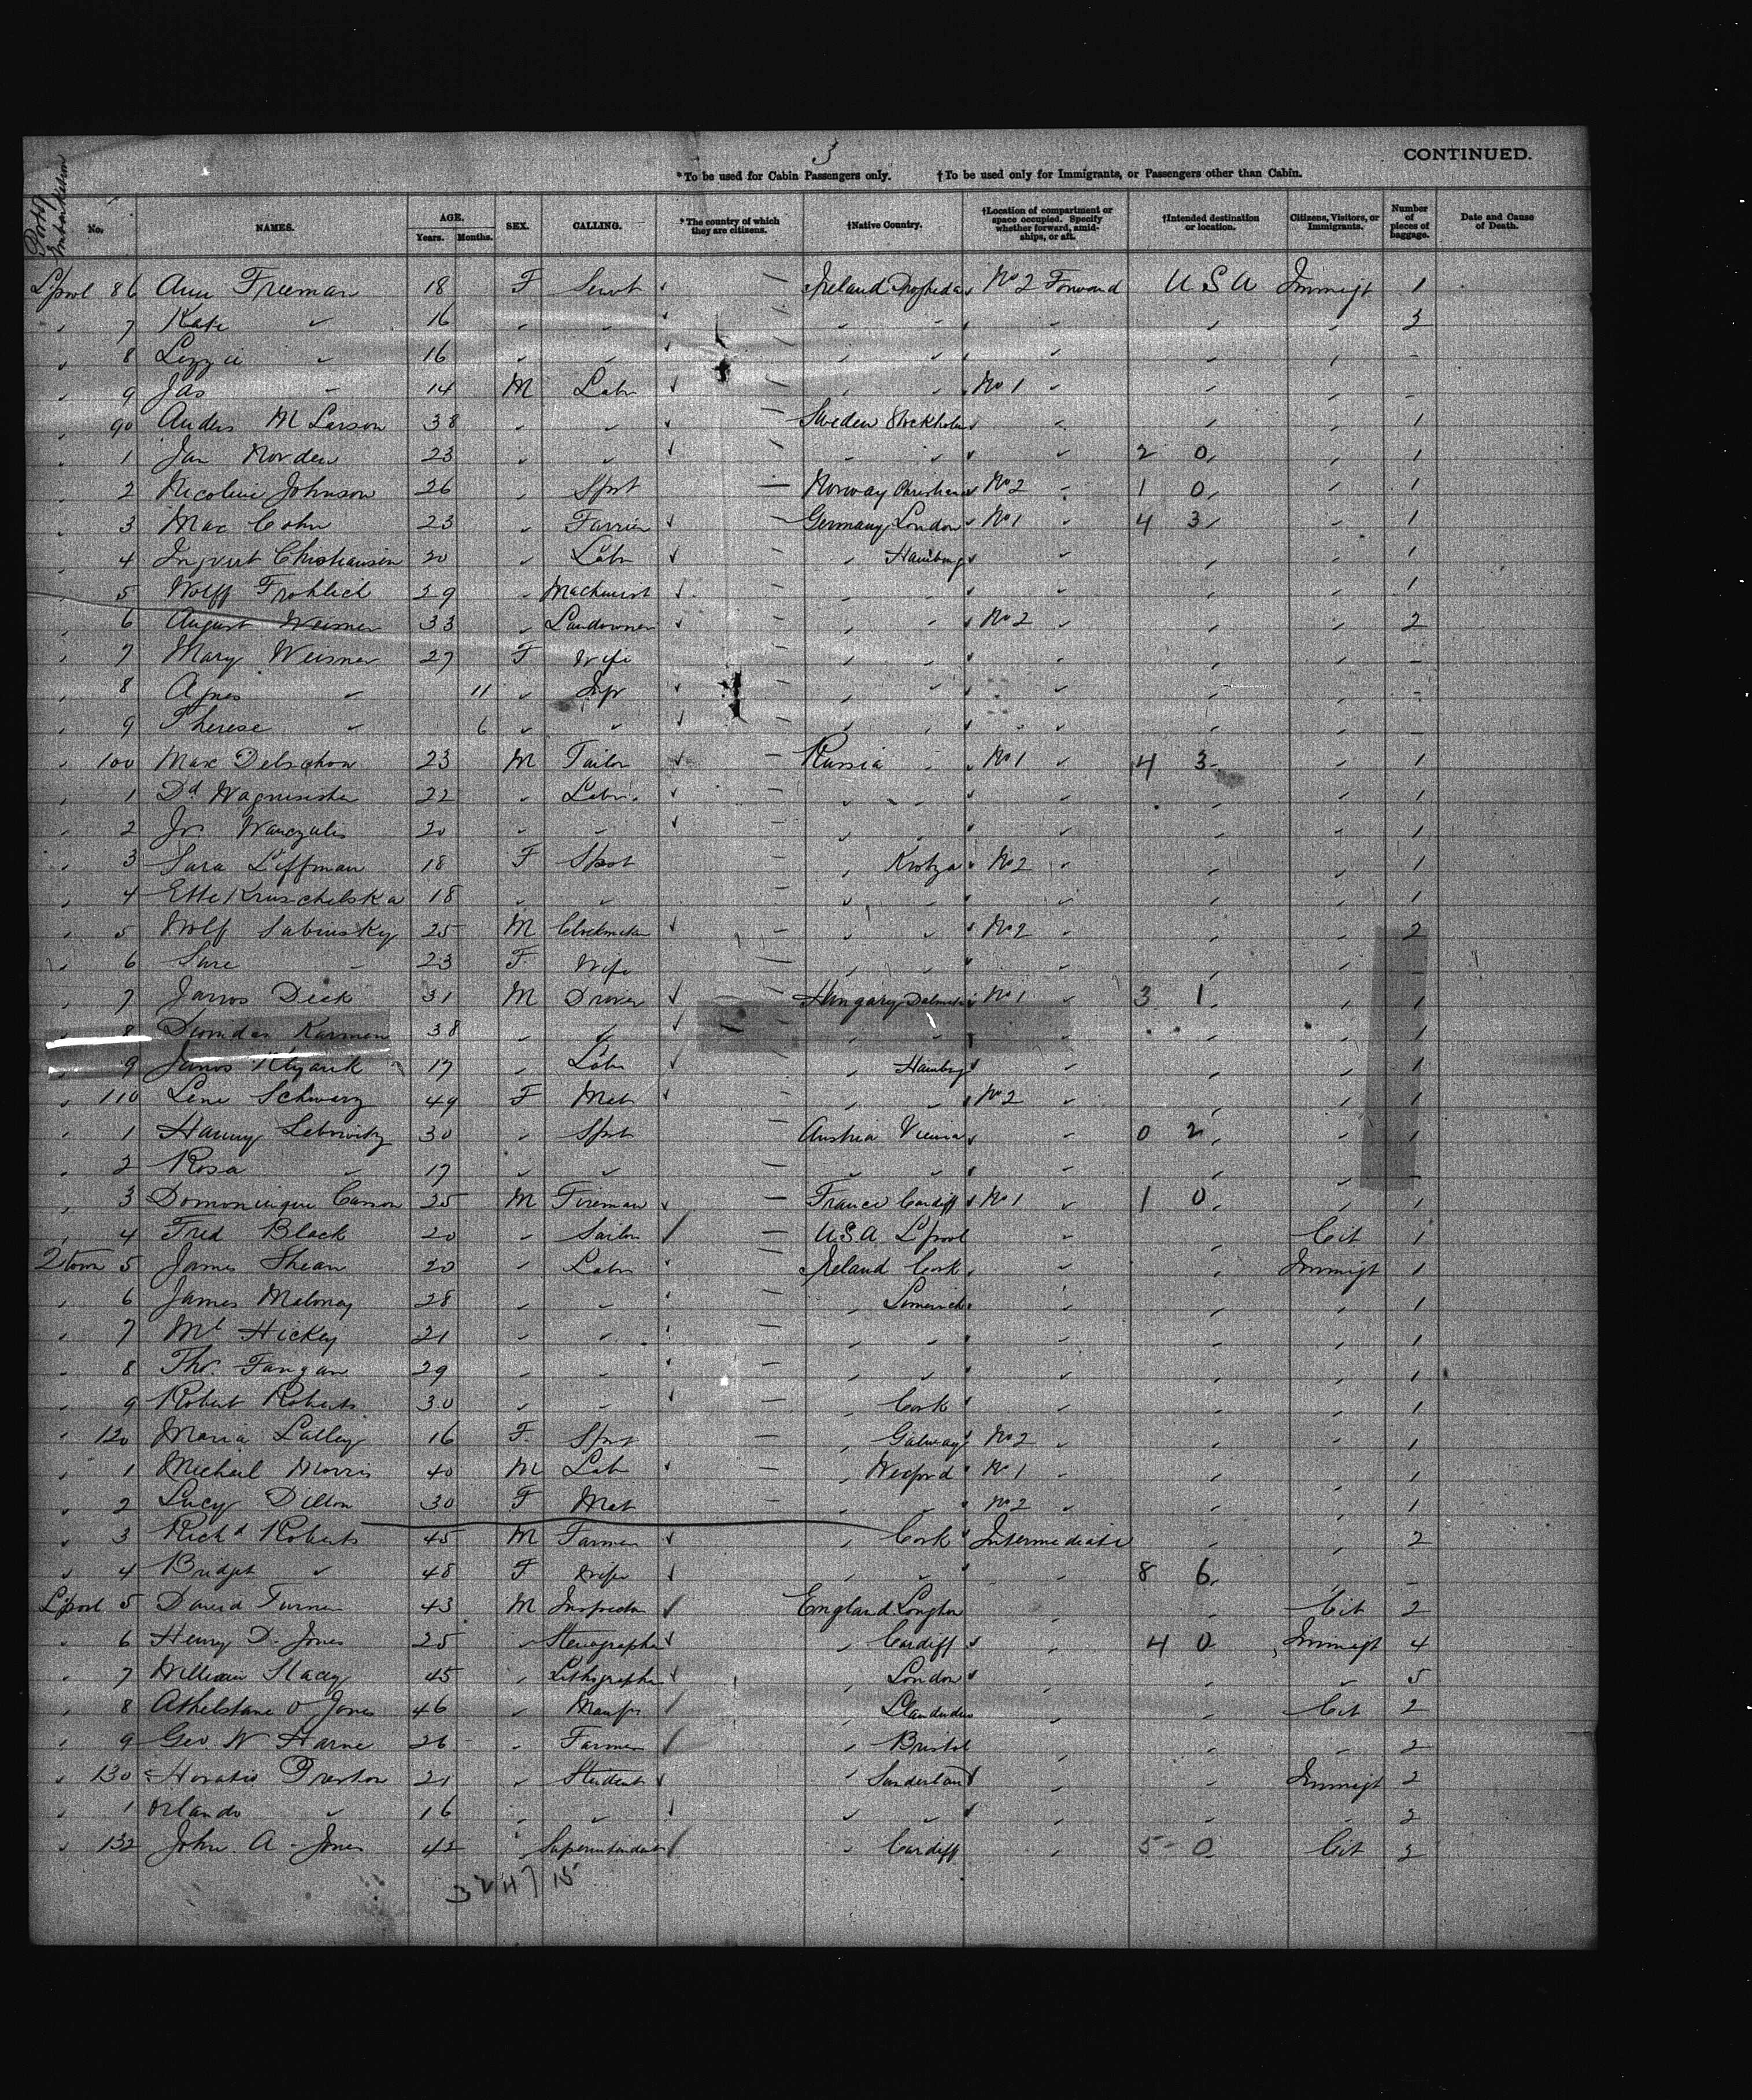 3
CONTINUED.
*To be used for Cabin Passengers only. †To be used only for Immigrants, or Passengers other than Cabin.
Port of Embarkation No. NAMES. AGE. Years. Months. SEX. CALLING. *The country of which they are citizens. †Native Country. †Location of compartment or space occupied. Specify whether forward, amidships, or aft. †Intended destination or location. Citizens, Visitors, or Immigrants. Number of pieces of baggage. Date and Cause of Death.
L'pool 86 Ann Freeman 18 F Servt Ireland Drogheda No 2 Forward U S A Immigt 1
7 Kate " 16 " " " " " " " 3
8 Lizzie " 16 " " " " " " " -
9 Jas " 14 M Labr " " No 1 " " " -
90 Anders M Larson 38 " " Sweden Stockholm " " " 1
1 Jan Norden 23 " " " " " 2 0 " 1
2 Nicoline Johnson 26 " Spst Norway Christiana No 2 " 1 0 " 1
3 Max Cohn 23 " Farrier Germany London No 1 " 4 3 " 1
4 Ingvert Christiansen 20 " Labr " Hamburg " " " 1
5 Wolff Frohlich 29 " Machinist " " " " " 1
6 August Weisner 33 " Landowner " " No 2 " " " 2
7 Mary Weisner 27 F Wife " " " " " -
8 Agnes " 11 " Inft " " " " " -
9 Therese " 6 " " " " " " " -
100 Max Delschow 23 M Tailor Russia " No 1 " 4 3 " 1
1 22 " Labr " " " " " 1
2 20 " " " " " " " 1
3 Sara Liffman 18 F Spst " No 2 " " " 1
4 Ette Kruschelska 18 " " " " " " " 1
5 Wolf Sabinsky 25 M Clockmaker " " No 2 " " " 2
6 Sare " 23 F Wife " " " " " -
7 Janos Deck 31 M Drover Hungary No 1 " 3 1 " 1
8 Karmen 38 " " " " " " " 1
9 Janos 17 " Labr " Hamburg " " " 1
110 Lene Schwarz 49 F Mat " " No 2 " " " 1
1 Hanny Lebowitz 30 " Spst Austria Vienna " 0 2 " 1
2 Rosa " 17 " " " " " " " -
3 Domonique Carron 25 M Fireman France Cardiff No 1 " 1 0 " 1
4 Fred Black 20 " Sailor U.S.A. L'pool " " Cit 1
Qtown 5 James Shean 20 " Labr Ireland Cork " " Immigt 1
6 James Maloney 28 " " " Limerick " " " 1
7 Ml Hickey 21 " " " " " " " 1
8 Thos. Fangan 29 " " " " " " " 1
9 Robert Roberts 30 " " " Cork " " " 1
120 Maria Lalley 16 F Spst " Galway No 2 " " " 1
1 Micheil Morris 40 M Lab " Wexford No 1 " " " 1
2 Lucy Dillon 30 F Mat " " No 2 " " " 1
3 Richd Roberts 45 M Farmer " Cork Intermediate " " 2
4 Bridget " 48 F Wife " " " 8 6 " -
L'pool 5 David Turner 43 M Inspector England Longton " " Cit 2
6 Henry D. Jones 25 " Stenographer " Cardiff " 4 0 Immigt 4
7 William Stacey 45 " Lithographer " London " " " 5
8 Athelstane O Jones 46 " Manfr " Llandudno " " Cit 2
9 Geo W Harne 26 " Farmer " Bristol " " " 2
130 Horatio Preston 21 " Student " Sunderland " " Immigt 2
1 Orlando " 16 " " " " " " " 2
132 John A. Jones 42 " Superintendent " Cardiff " 5 0 Cit 3